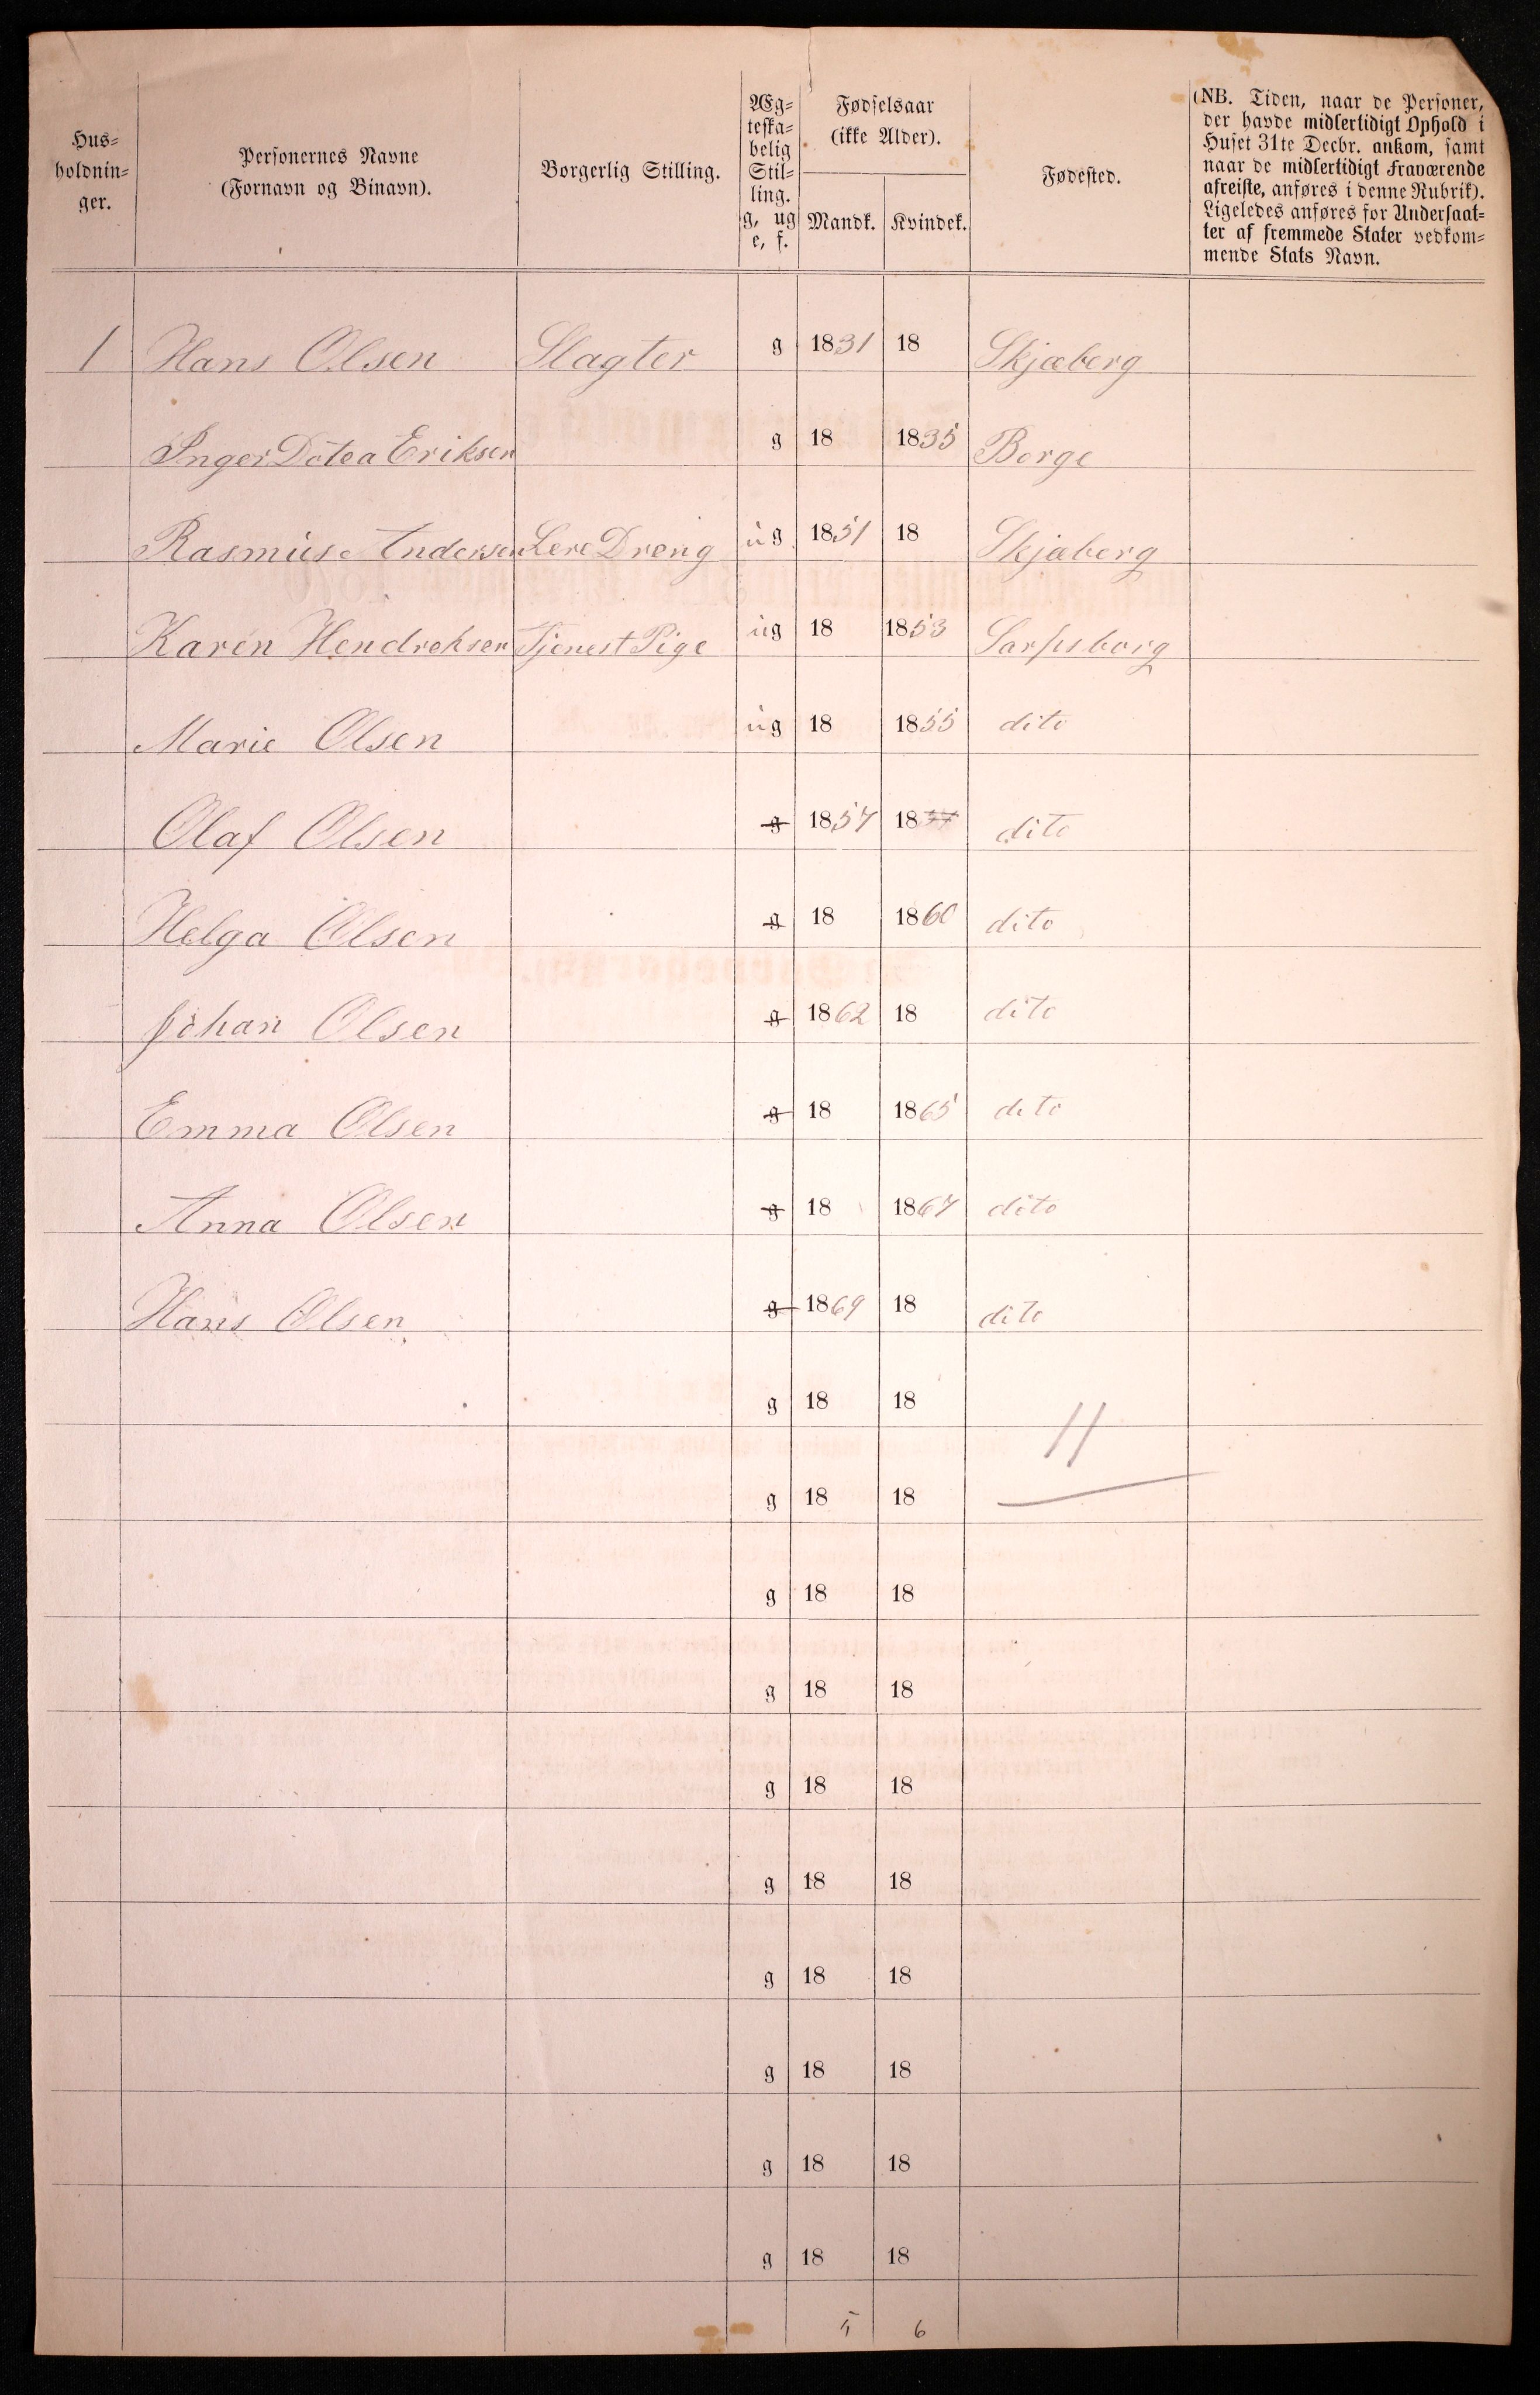 Hus=
holdnin=
ger.
Personernes Navne
(Fornavn og Binavn).
Borgerlig Stilling.
Æg=
teska=
belig
Stil=
ling.
g, ug
e, f.
Fødselsaar
(ikke Alder).
Mandk.
Kvindek.
Fødested.
(NB. Tiden, naar de Personer,
der havde midlertidigt Ophold i
Huset 31te Decbr. ankom, samt
naar de midlertidigt fraværende
afreiste, anføres i denne Rubrik).
Ligeledes anføres for Undersaat=
ter af fremmede Stater vedkom=
mende Stats Navn.
1 Hans Olsen Slagter g 1831 18 Skjæberg
Inger Dotea Eriksen g 18 1835 Borge
Rasmus Andersen Lere Dreng ug 1851 18 Skjæberg
Karen Hendreksen Tjenest Pige ug 18 1853 Sarpsborg
Marie Olsen ug 18 1855 dito
Olaf Olsen g 1857 18 dito
Helga Olsen g 18 1860 dito
Johan Olsen g 1862 18 dito
Emma Olsen g 18 1865 dito
Anna Olsen g 18 1867 dito
Hans Olsen g 1869 18 dito
g 18 18 11
g 18 18
g 18 18
g 18 18
g 18 18
g 18 18
g 18 18
g 18 18
g 18 18
g 18 18
5 6